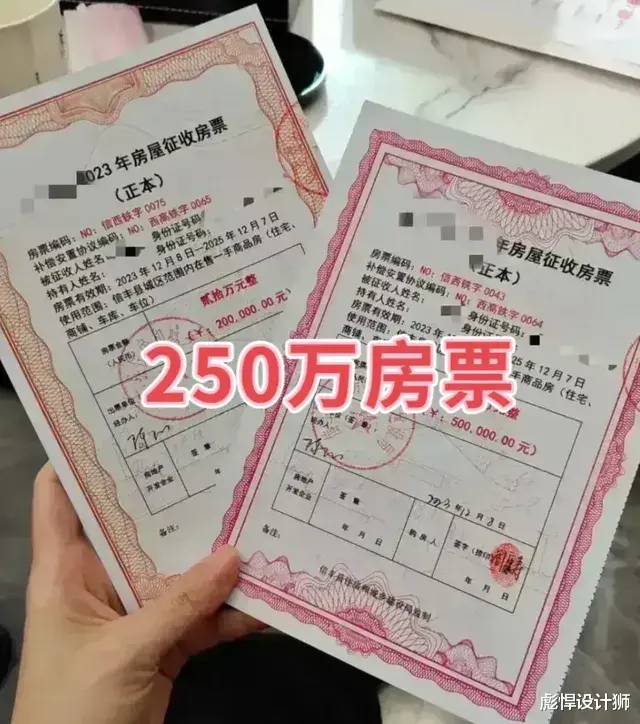 2023年房屋征收房票
(正本)
房票编码: NO: 信西铁字 0075
补偿安置协议编码: NO: 西高铁字 0065
被征收人姓名: 身份证号码:
持有人姓名: 身份证号码:
房票有效期: 2023年12月8日—2025年12月7日
使用范围: 信丰县城区范围内在售一手商品房(住宅、
商铺、车库、车位)
房票金额
(人民币)
贰拾万元整
(¥: 200,000.00 元)
出票单位
经办人:
房地产
开发企业
签章
年 月
备注:
年房屋征收房票
(正本)
房票编码: NO: 信西铁字 0043
补偿安置协议编码: NO: 西高铁字 0064
被征收人姓名: 身份证号码:
持有人姓名: 身份证号码:
房票有效期: 2023年 2025年12月7日
使用范围: 一手商品房(住宅、
商铺、车
整
(¥: 500,000.00 元)
经办人:
2023年12月8日
房地产
开发企业
签章
年 月 日
购房人
签字
年 月 日
备注:
250万房票
彪悍设计狮